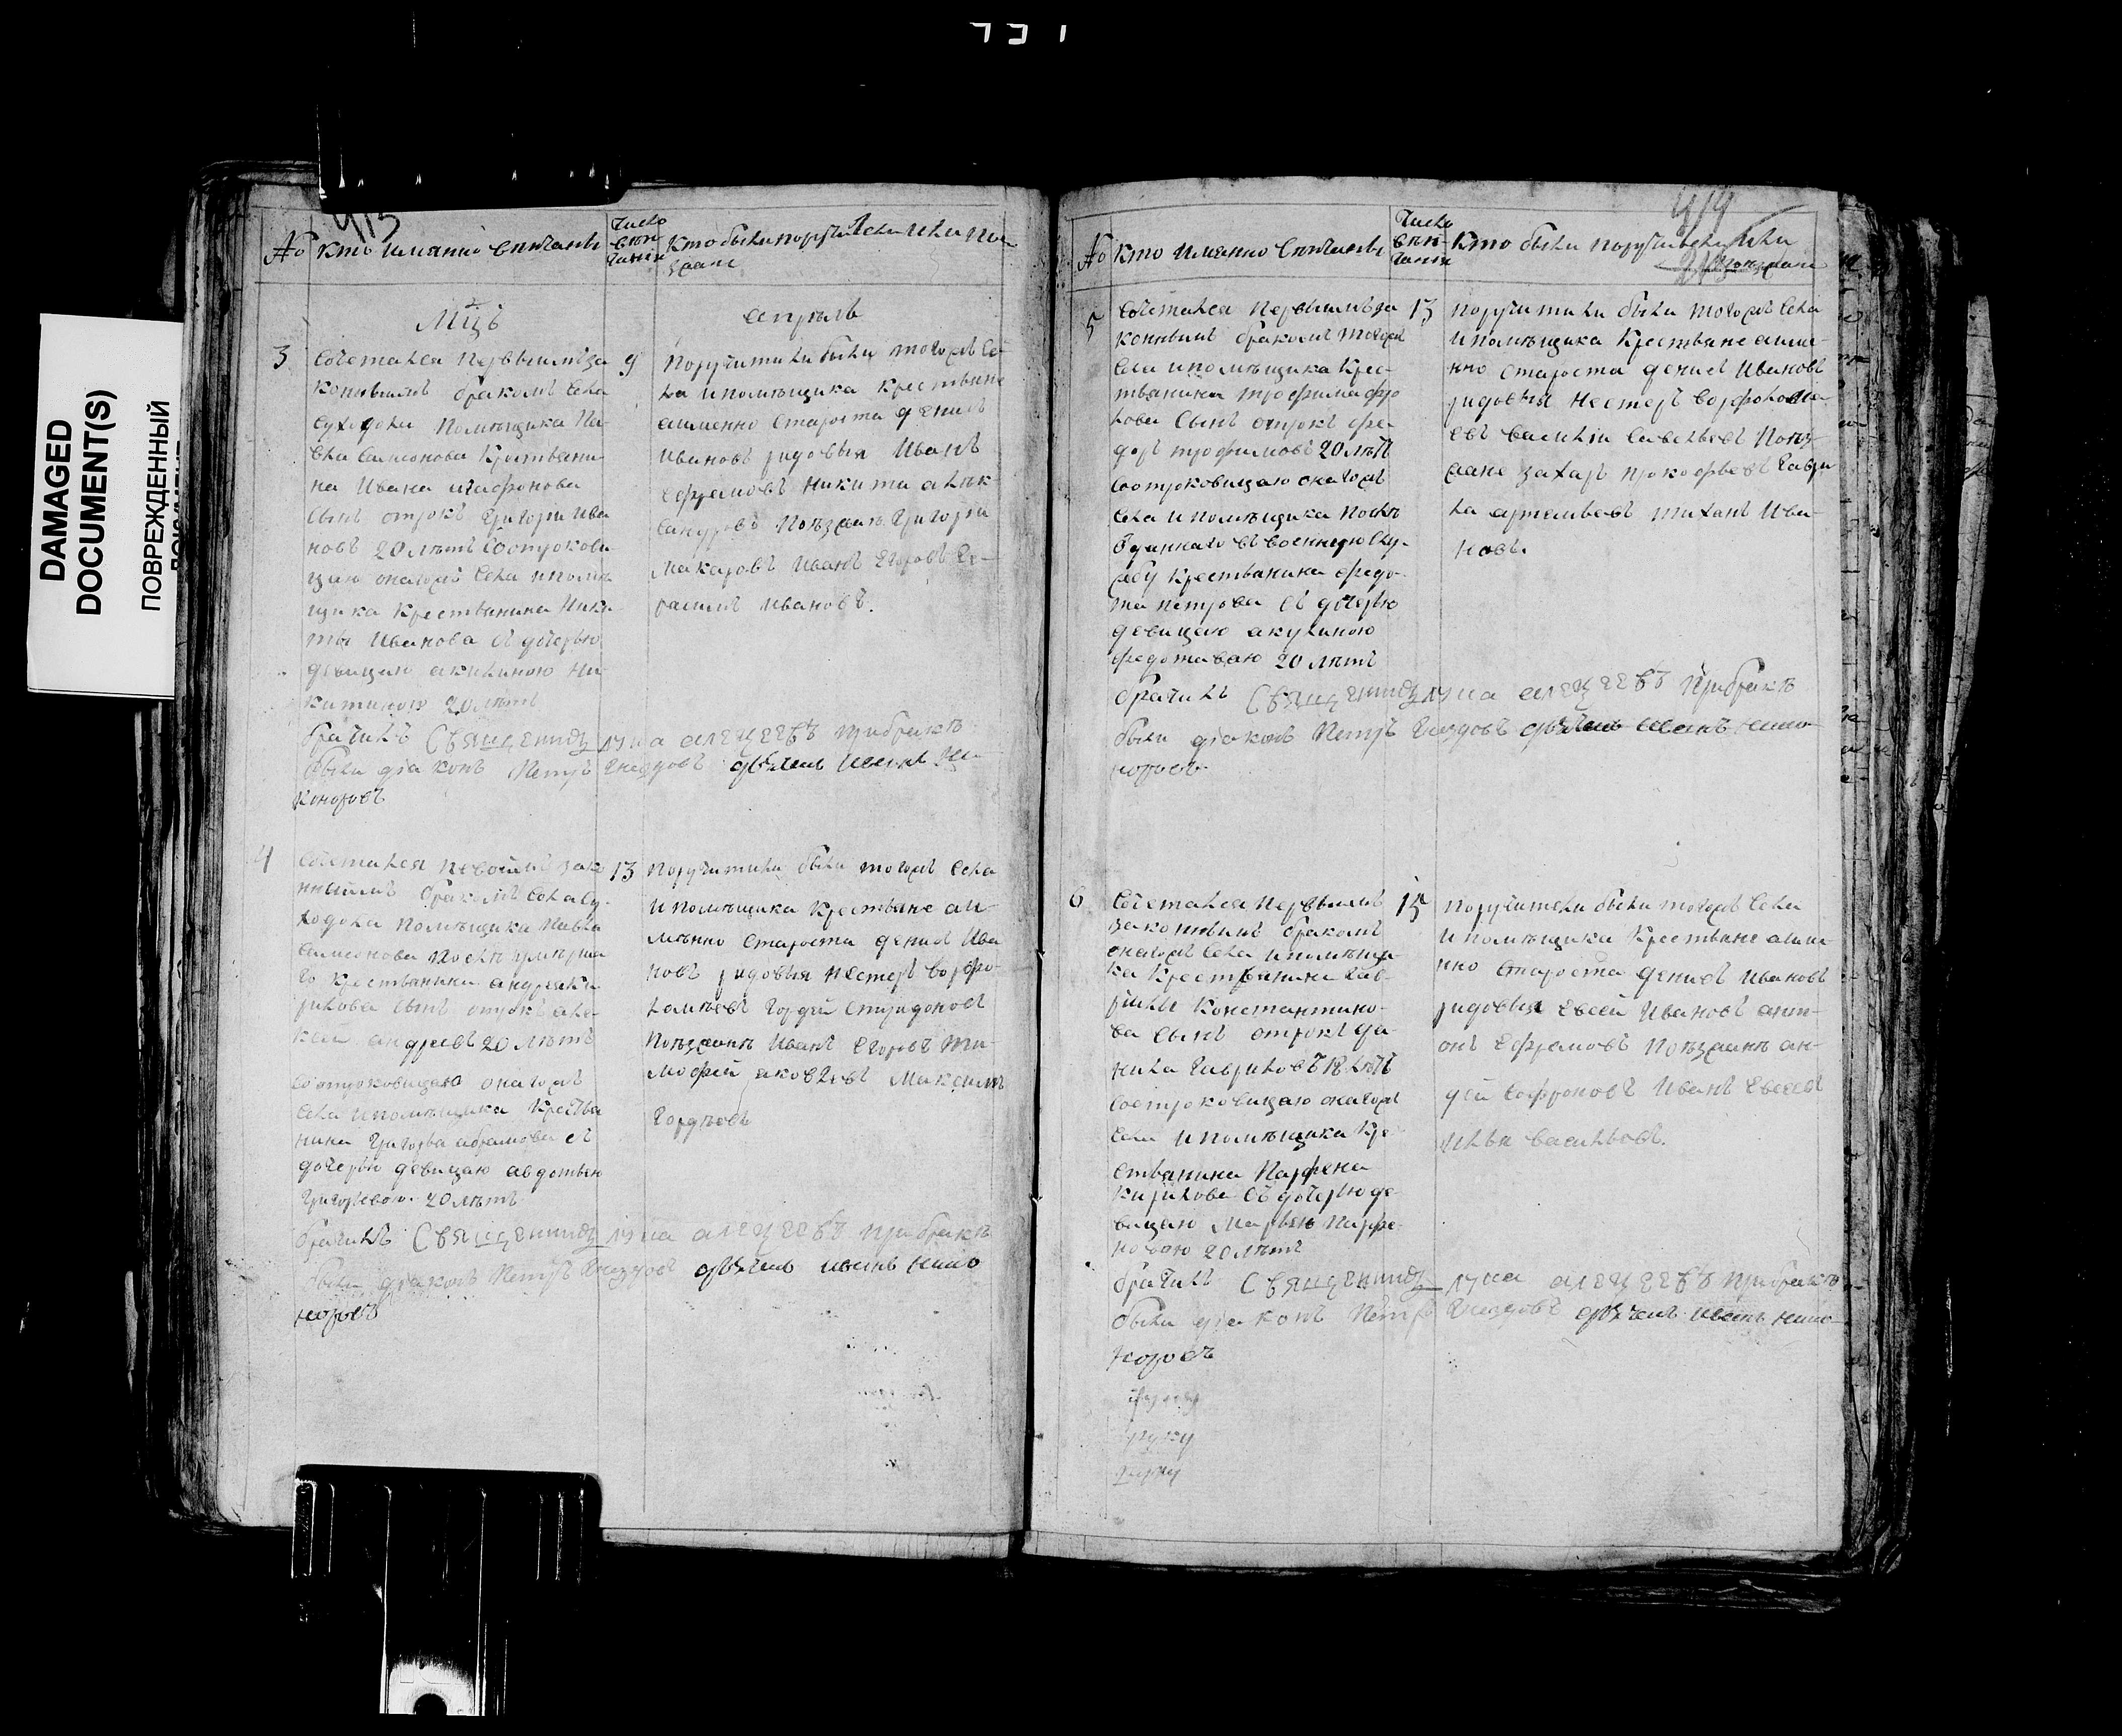 DAMAGED
DOCUMENT(S)
ПОВРЕЖДЕННЫЙ
413
№ Кто имянно венчаны
Число венчания
Кто были поручители или поезжане
Мцъ апрель
3
сочетался первымъ за
коннымъ бракомъ села
суходола помѣщика Па
вла Самсонова Крестьяни
на Ивана
сынъ отрокъ Григори Ива
новъ 20 лѣтъ соотрокови
цею онагожъ села и помѣ
щика Крестьянина Ники
ты Иванова съ дочерью
девицею акилиною Ни
китиною 20 лѣтъ
9
поручители были тогожъ се
ла и помѣщика крестьяне
аимменно староста денисъ
Ивановъ рядовыя Иванъ
Ефремовъ Никита алек
сандровъ Поѣзжанѣ Григори
Макаровъ Иванъ Егоровъ Ге
расимъ Ивановъ.
брачилъ Священникъ Лука алеѯеевъ при бракѣ
были діаконъ Петръ Гнездовъ дьячекъ Иванъ Ни
коноровъ
4
сочетался зако
ннымъ бракомъ села су
ходола помѣщика Павла
Самсонова после умерша
го крестьянина андрея Ки
рилова сынъ отрокъ але
ксей андреевъ 20 лѣтъ
соотроковицею онагожъ
села и помѣщика Крестья
нина Григорья абрамова съ
дочерью девицею авдотьею
Григорьевою 20 лѣтъ
13
поручители были тогожъ села
и помѣщика крестьяне аи
мѣнно староста денисъ Ива
новъ рядовыя нестеръ ворфо
ламѣевъ Гордей Спиридоновъ
Поѣзжанѣ Иванъ Егоровъ Ти
мофей яковлевъ Максимъ
Гордѣевъ
брачилъ Священникъ Лука алеѯеевъ при бракѣ
были діаконъ Петръ Гнездовъ дьячекъ Иванъ Нико
норовъ
414
№ Кто имянно венчаны
Число венчания
Кто были поручители или поезжане
5
сочетался первымъ за
коннымъ бракомъ тогожъ
села и помѣщика Крес
тьянина трофима фро
лова сынъ отрокъ фе
доръ трофимовъ 20 лѣтъ
соотроковицею онагожъ
села и помѣщика послѣ
отданнаго въ военную слу
жбу крестьянина федо
та петрова съ дочерью
девицею акулиною
федотаваю 20 лѣтъ
13
поручители были тогожъ села
и помѣщика Крестьяне аиме
нно староста денисъ Ивановъ
рядовыя Нестеръ Ворфоломе
евъ василіи Савельевъ Поѣз
жане захаръ прокофьевъ Гаври
ла артемьевъ тиханъ Ива
новъ.
брачилъ Священникъ Лука алеѯеевъ при бракѣ
были діаконъ Петръ Гнездовъ дьячекъ Иванъ Нико
норовъ
6
сочетался первымъ
законнымъ бракомъ
онагожъ села и помѣщи
ка Крестьянина Гав
рилы Константино
ва сынъ отрокъ да
нила Гавриловъ 18 лѣтъ
соотроковицею онагожъ
села и помѣщика Кре
стьянина Парфена
Кирилова съ дочерью де
вицею Марьею Парфе
новою 20 лѣтъ
15
поручители были тогожъ села
и помѣщика Крестьяне аиме
нно староста денисъ Ивановъ
рядовыя Евсей Ивановъ
Ефремовъ Поѣзжанѣ ан
дей софроновъ Иванъ Евсеевъ
Илья васильевъ.
брачилъ Священникъ Лука алеѯеевъ при бракѣ
были діаконъ Петръ Гнездовъ дьячекъ Иванъ Нико
норовъ